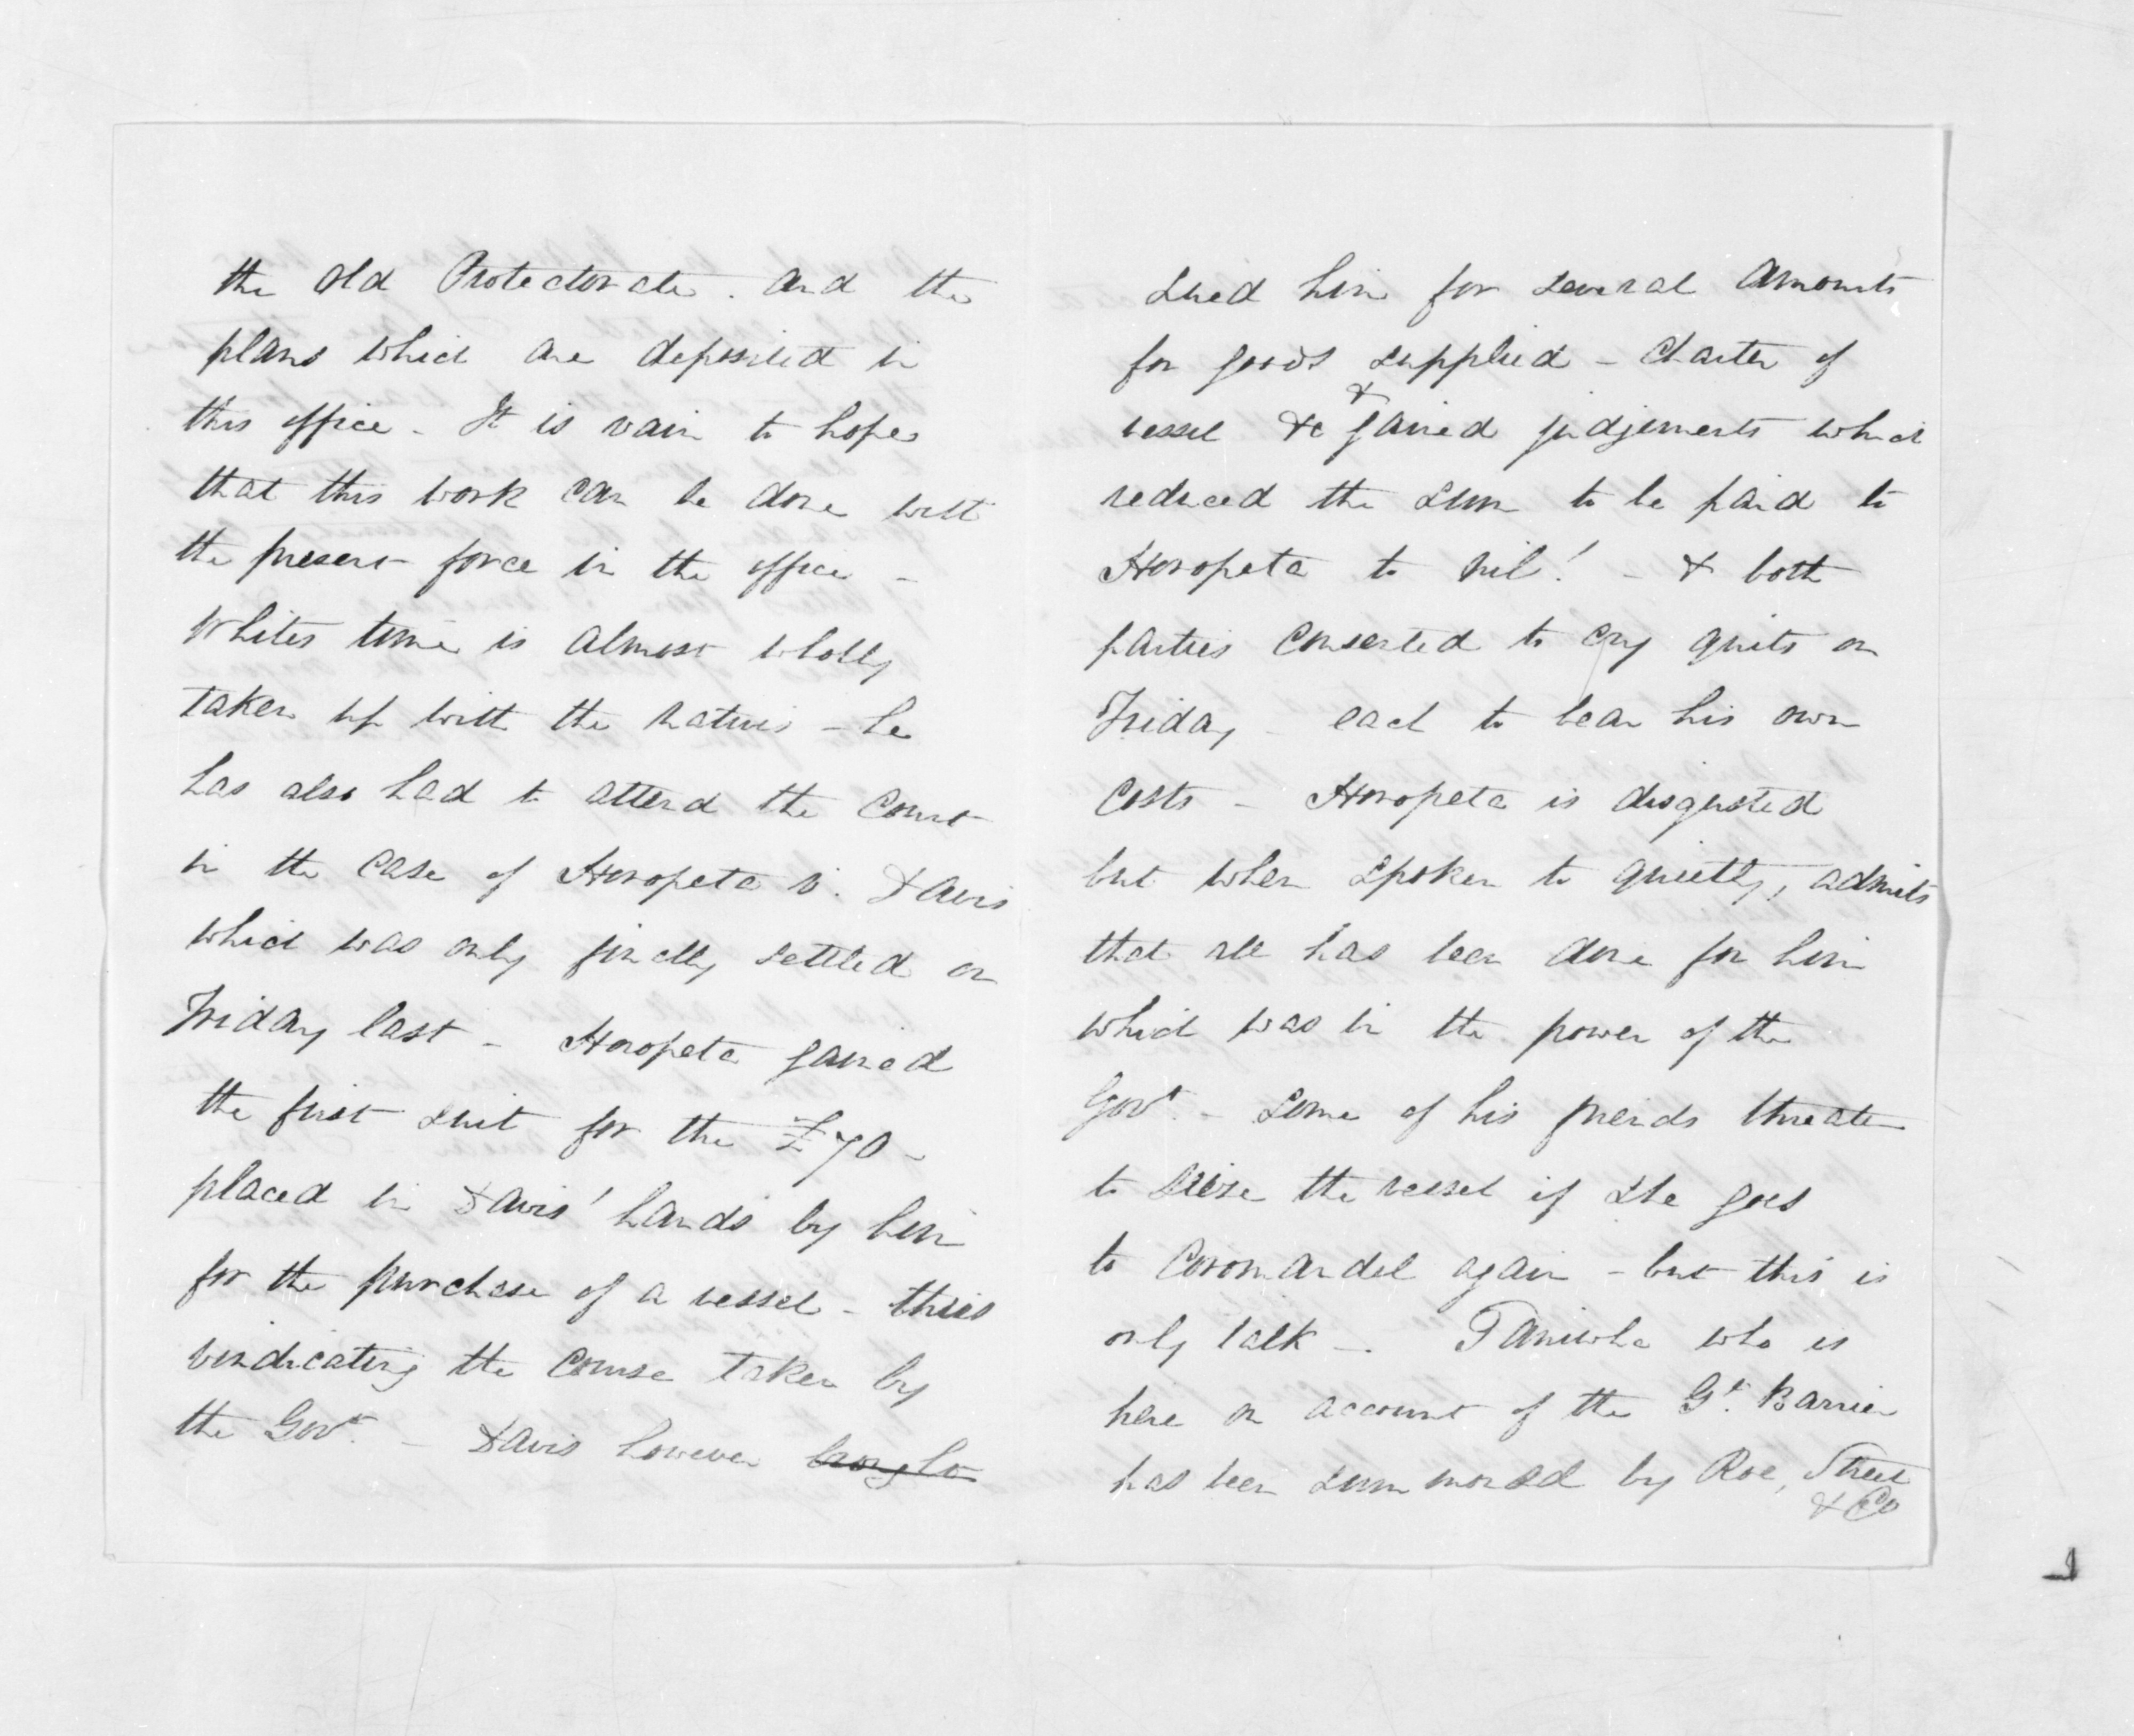 the old Protectorate. And the
plans which are deposited in
this office - It is vain to hope
that this work can be done with
the present force in the office -
Whites time is almost wholly
taken up with the natives - he
has also had to attend the Court
in the case of Horopeta v. Davis
which was only finally settled on
Friday last - Horopeta gained
the first suit for the £70 -
placed in Davis' hands by him
for the purchase of a vessel - thus
vindicating the course taken by
the Govt. - Davis however brought
sued him for several amounts
for goods supplied - Charter of
vessel &c & gained judgements which
reduced the sum to be paid to
Horopeta to nil! - & both
parties consented to cry quits on
Friday - each to bear his own
costs - Horopeta is disgusted
but when spoken to quietly, admits
that all has been done for him
which was in the power of the
Govt. - Some of his freinds threaten
to seize the vessel if she goes
to Coromandel again - but this is
only talk -. Taniwha who is
here on account of the Gt. Barrier
has been summoned by Roe, Street
& Co